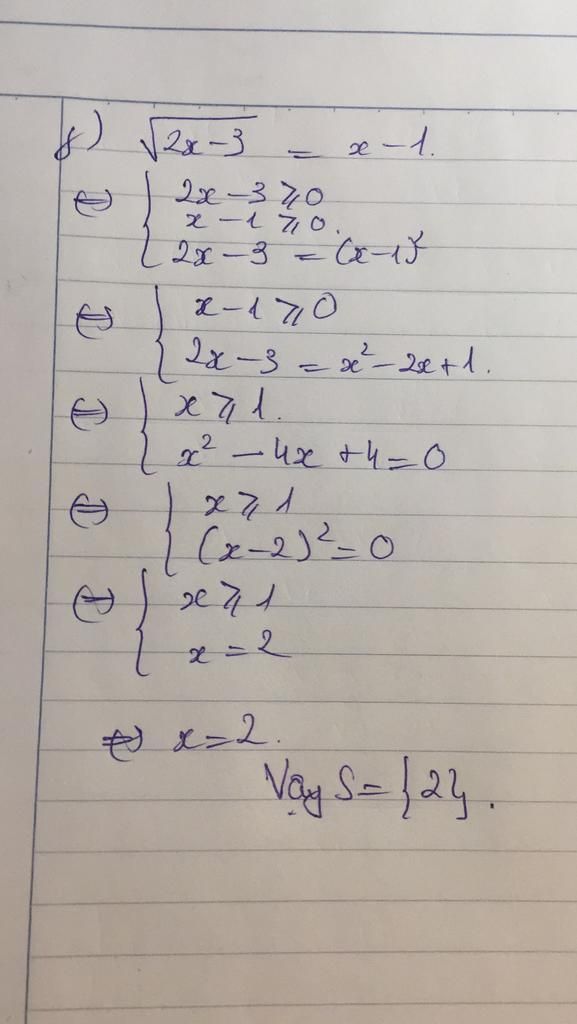 f) √2x-3 = x-1.
⇔ { 2x-3 ⩾ 0
x-1 ⩾ 0.
2x-3 = (x-1)²
⇔ { x-1 ⩾ 0
2x-3 = x²-2x+1.
⇔ { x ⩾ 1.
x² - 4x + 4 = 0
⇔ { x ⩾ 1
(x-2)² = 0
⇔ { x ⩾ 1
x = 2
⇔ x = 2.
Vậy S = {2}.